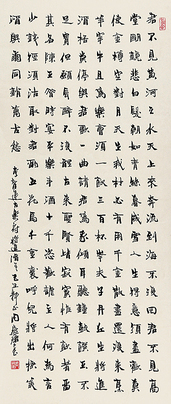 君不見黃河之水天上來奔流到海不復回君不見高
堂明鏡悲白髮朝如青絲暮成雪人生得意須盡歡莫
使金樽空對月天生我材必有用千金散盡還復來烹
羊宰牛且為樂會須一飲三百杯岑夫子丹丘生將進
酒杯莫停與君歌一曲請君為我傾耳聽鐘鼓饌玉不
足貴但願長醉不願醒古來聖賢皆寂寞惟有飲者留
其名陳王昔時宴平樂斗酒十千恣歡謔主人何為言
少錢徑須沽取對君酌五花馬千金裘呼兒將出換美
酒與爾同銷萬古愁